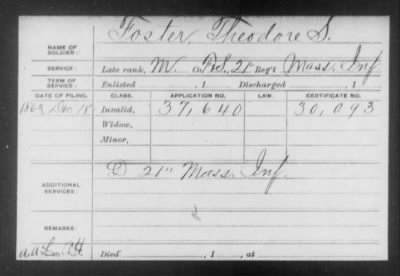 Foster, Theodore S.
NAME OF SOLDIER:
SERVICE: Late rank, Co. F.S., 21" Reg't Mass. Inf.
TERM OF SERVICE: Enlisted , 1 Discharged , 1
DATE OF FILING. CLASS. APPLICATION NO. LAW. CERTIFICATE NO.
1863 Dec 18 Invalid, 37,640 30,093
Widow,
Minor,
D 21" Mass. Inf.
ADDITIONAL SERVICES:
REMARKS:
Died , 1 , at